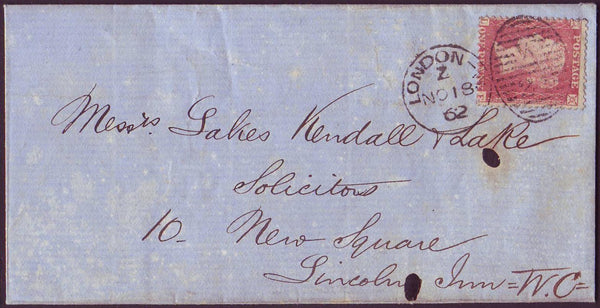 LONDON
Z
NO 18
62
POSTAGE
Messrs Lakes Kendall & Lake
Solicitors
10 - New Square
Lincolns Inn = W.C =